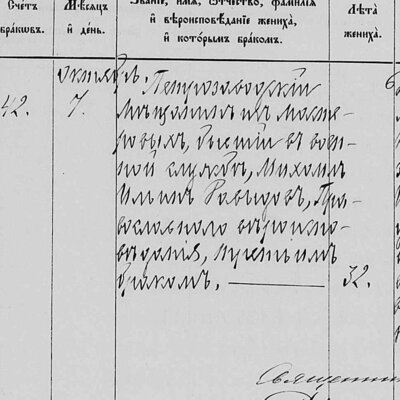 Счетъ браковъ.
Мѣсяцъ и день.
Званіе, имя, отчество, фамилія
и вѣроисповѣданіе жениха,
и которымъ бракомъ.
Лѣта жениха.
Октябрь.
42.
7.
Петрозаводскій
мѣщанинъ изъ масте-
ровыхъ, бывшій въ воен-
ной службѣ, Михаилъ
Ильинъ Давыдовъ, Пра-
вославнаго вѣроиспо-
вѣданія, третьимъ
бракомъ.
32.
Священник